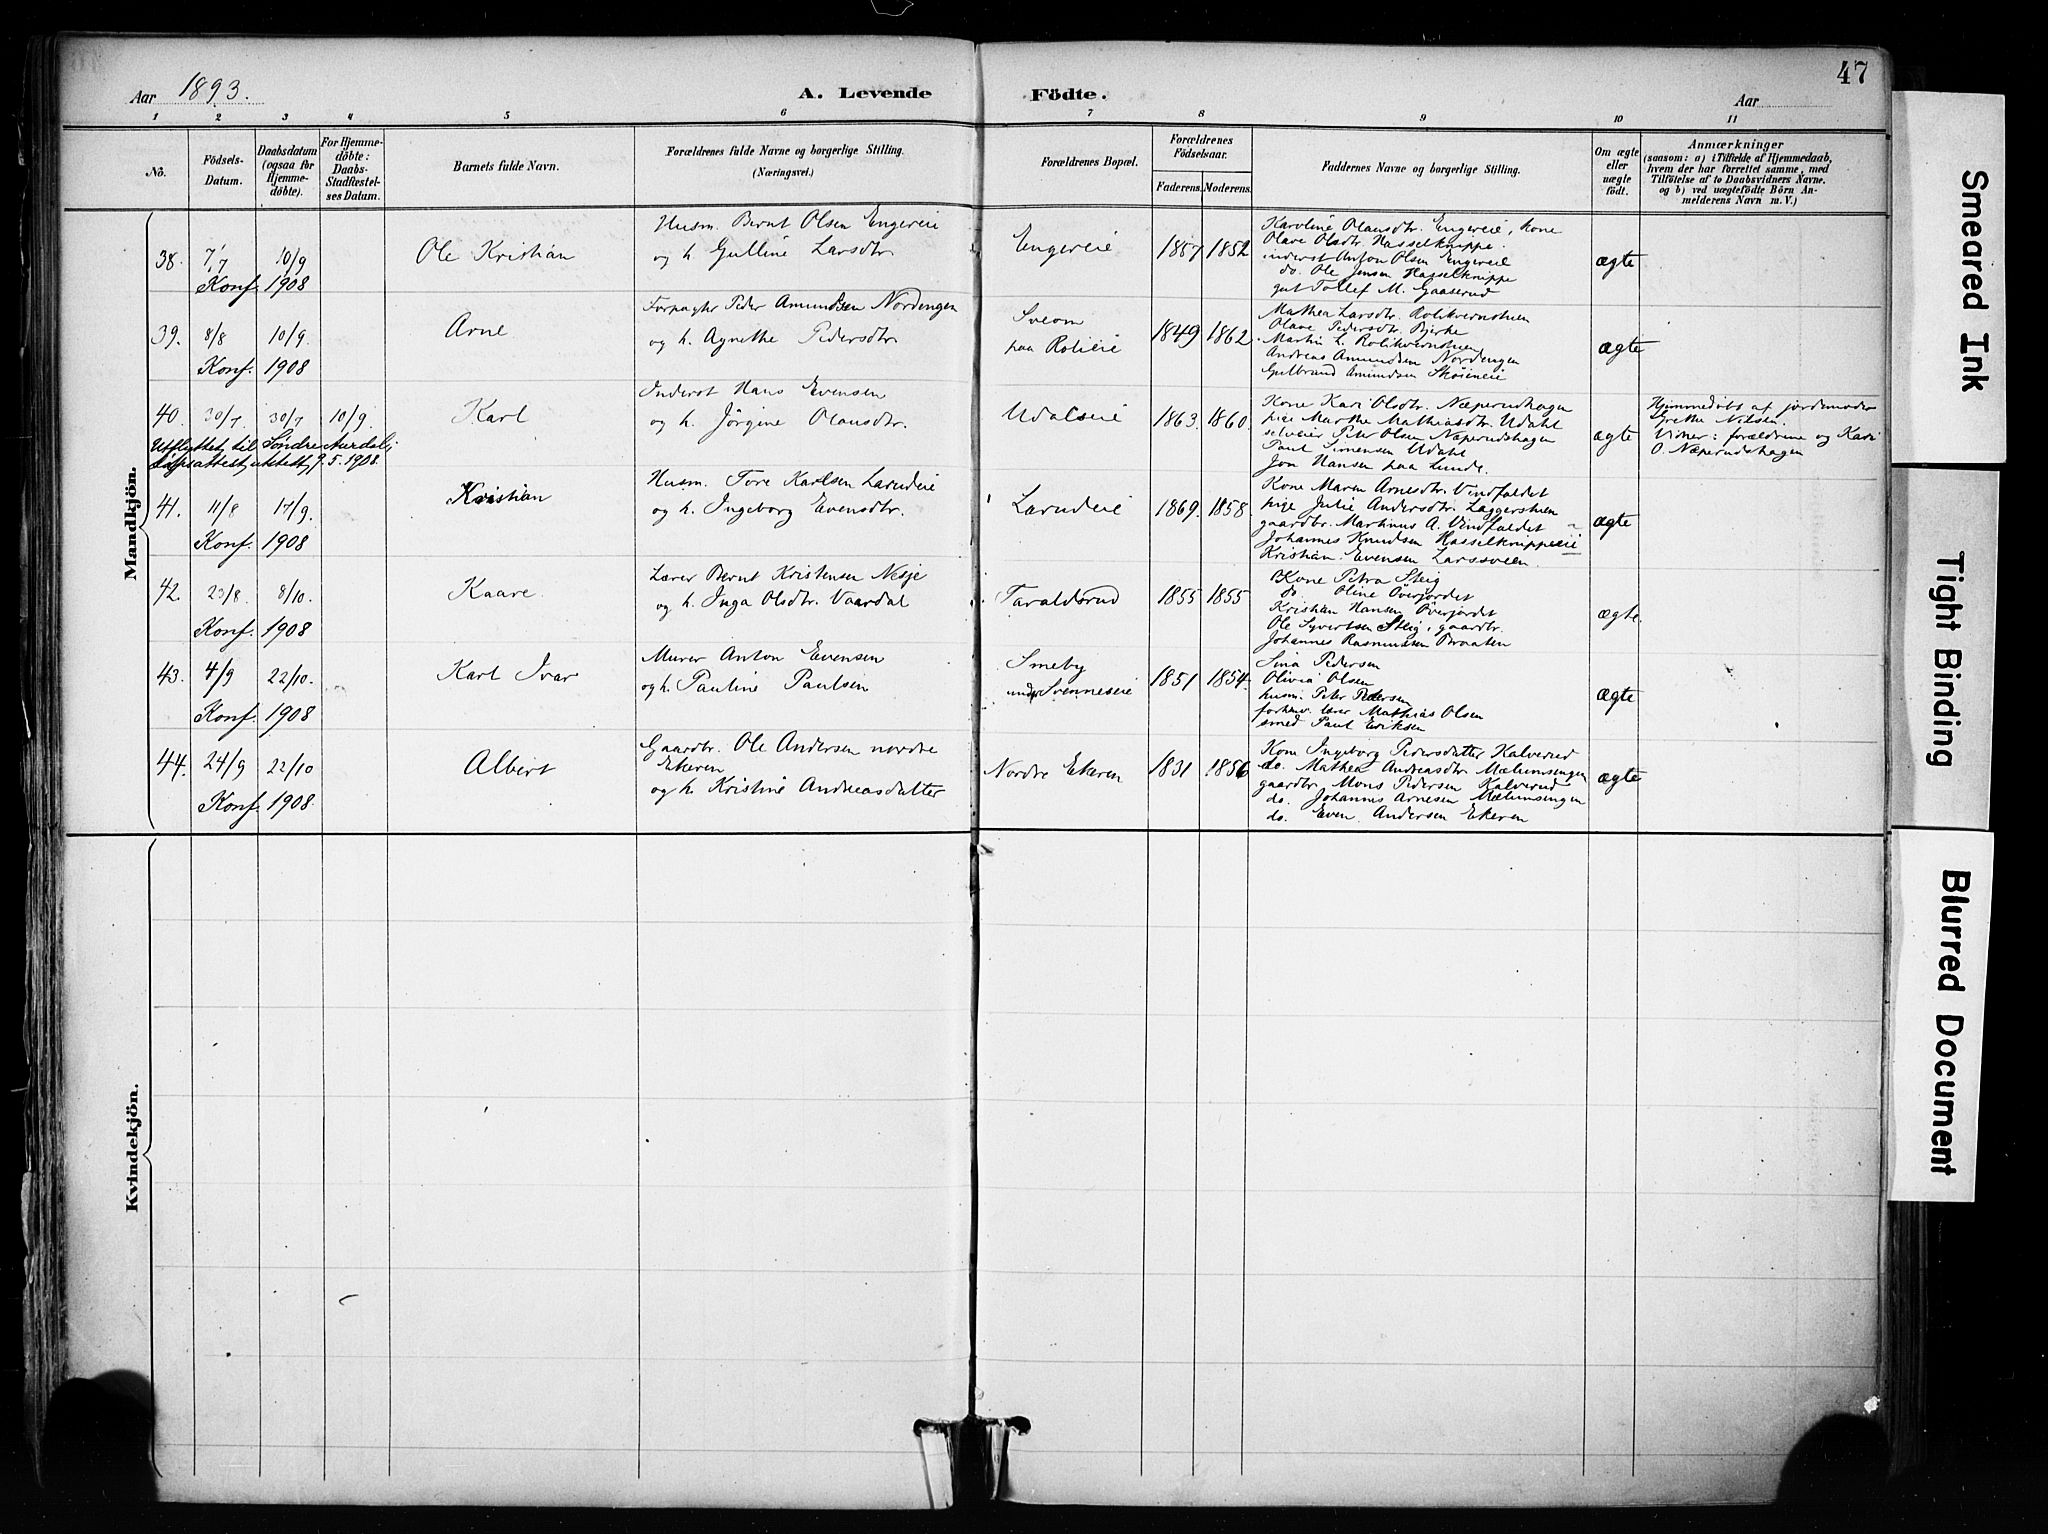 47
Aar 1893.
A. Levende Födte.
Aar
1 2 3 4 5 6 7 8 9 10 11
No.
Födsels-
Datum.
Daabsdatum
(ogsaa for
Hjemme-
döbte).
For Hjemme-
döbte:
Daabs-
Stadfæstel-
ses Datum.
Barnets fulde Navn.
Forældrenes fulde Navne og borgerlige Stilling.
(Næringsvei.)
Forældrenes Bopæl.
Forældrenes
Födselsaar.
Faderens. Moderens.
Faddernes Navne og borgerlige Stilling.
Om ægte
eller
uægte
födt.
Anmærkninger
(saasom: a) i Tilfælde af Hjemmedaab,
hvem der har forrettet samme, med
Tilföielse af to Daabsvidners Navne.
og b) ved uægtefödte Börn An-
melderens Navn m. V.)
Mandkjön.
38. 7/7 10/9
Konf. 1908
Ole Kristian
Husm. Bernt Olsen Engereie
og h. Gulline Larsdtr.
Engereie
1857 1852
Karoline Olausdtr. Engereie, kone
Olave Olsdtr. Hasselknippe.
inderst Anton Olsen Engereie
do. Ole Jensen Hasselknippe
gut Tollef M. Gaaserud
ægte
39. 8/8 10/9.
Konf. 1908
Arne
Forpagter Peder Amundsen Nordengen
og h. Agnethe Pedersdtr.
Sveom
paa Rolieie
1849 1862
Mathea Larsdtr. Rolikvernstuen
Olave Pedersdtr. Bjerke
Martin L. Rolikvernstuen
Andreas Amundsen Nordengen
Gulbrand Amundsen Sköieneie
ægte
40. 30/7 30/7 10/9.
Utflyttet til Søndre Aurdal;
Daapsattest utstedt 9.5.1908.
Karl
Inderst Hans Evensen
og h. Jörgine Olausdtr.
Udalseie
1863. 1860.
Kone Kari Olsdtr. Næperudhagen
pige Marthe Mathiasdtr. Udahl
selveier Peter Olsen Næperudshagen
Paul Simensen Udahl
Jon Hansen paa Lunde.
ægte
Hjemmedöbt af jordemoder
Grethe Nilsen.
Vidner: forældrene og Kari
O. Næperudshagen
41. 11/8 17/9.
Konf. 1908
Kristian
Husm. Tore Karlsen Larudeie
og h. Ingeborg Evensdtr.
Larudeie
1869. 1858
Kone Maren Arnesdtr. Vindfaldet
pige Julie Andersdtr. Laggerstuen
gaardbr. Martinus A. Vindfaldet
Johannes Knudsen Hasselknippeeie
Kristian Evensen Larssveen.
ægte
42. 23/8 8/10.
Konf. 1908
Kaare.
Lærer Bernt Kristensen Nesje
og h. Inga Olsdtr. Vaardal
Taraldsrud
1855 1855
Kone Petra Steig
do. Oline Överjordet
Kristian Hansen Överjordet
Ole Syvertsen Steig, gaardbr.
Johannes Rasmussen Braaten
ægte.
43. 4/9 22/10.
Konf. 1908
Karl Ivar
Murer Anton Evensen
og h. Pauline Paulsen
Smeby
under Svenneseie
1851 1854.
Sina Pedersen
Olivia Olsen
husm. Peter Pedersen
forhenv. lærer Mathias Olsen
smed Paul Eriksen
ægte
44. 24/9 22/10
Konf. 1908.
Albert
Gaardbr. Ole Andersen nordre
Ekeren
og h. Kristine Andreasdatter
Nordre Ekeren
1831 1856
Kone Ingeborg Pedersdatter Kalverud
do. Mathea Andreasdtr. Mælumsingen
gaardbr Mons Pedersen Kalverud
do. Johannes Arnesen Mælumsingen
do. Even Andersen Ekeren
ægte
Kvindekjön.
Smeared Ink
Tight Binding
Blurred Document